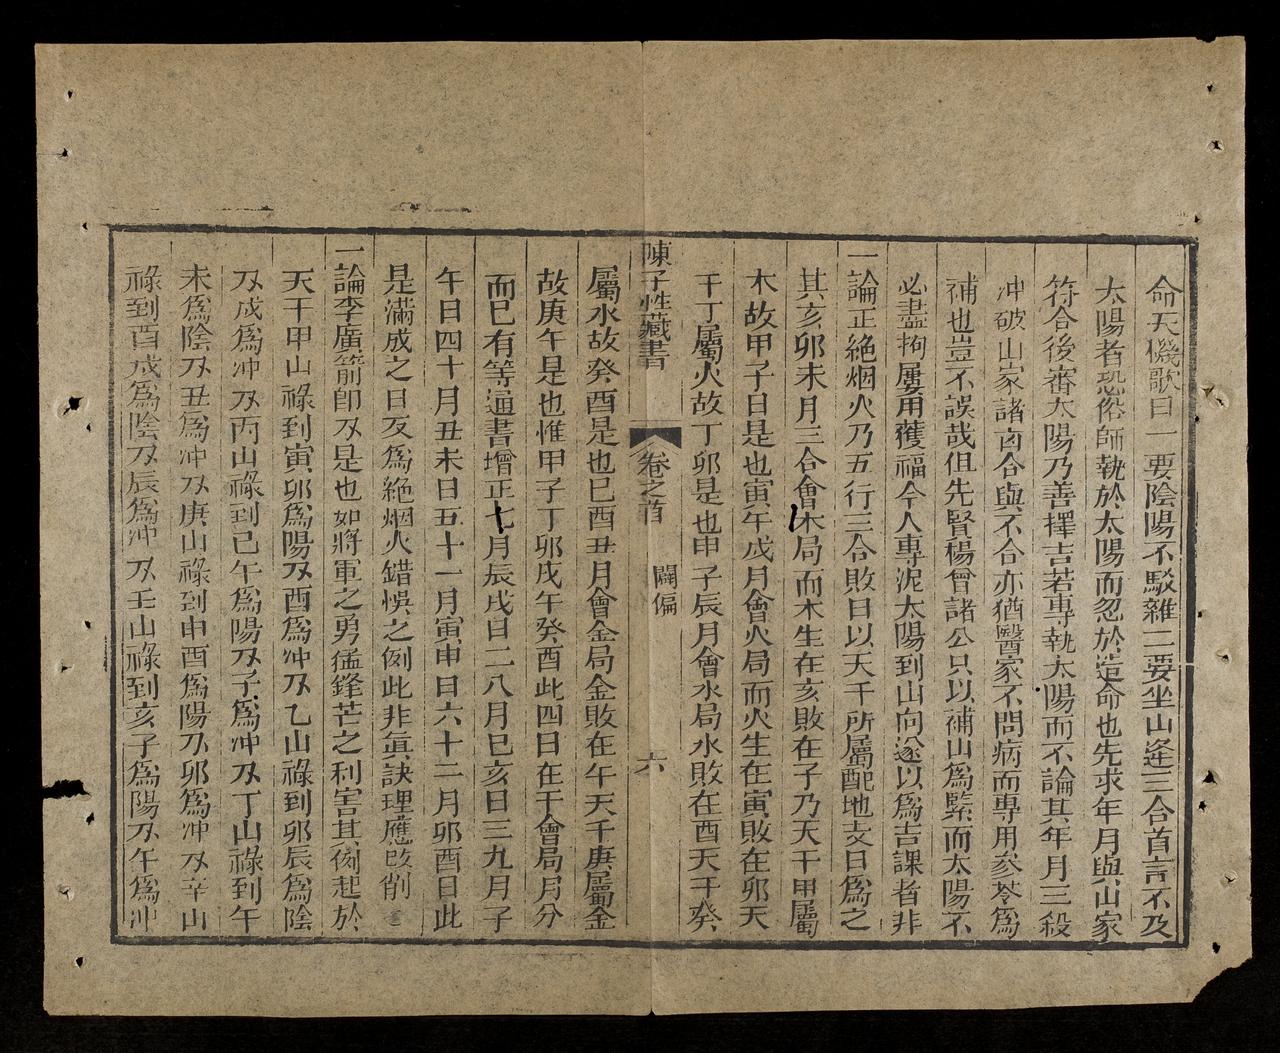 命天機歌曰一要陰陽不駁雜二要坐山逢三合首言不及
太陽者恐俗師執於太陽而忽於造命也先求年月與山家
符合後審太陽乃善擇吉若專執太陽而不論其年月三殺
冲破山家諸凶合與不合亦猶醫家不問病而專用參苓爲
補也豈不誤哉但先賢楊曾諸公只以補山爲緊而太陽不
必盡拘屢用獲福今人專泥太陽到山向遂以爲吉課者非
一論正絶烟火乃五行三合敗日以天干所屬配地支日爲之
其亥卯未月三合會木局而木生在亥敗在子乃天干甲屬
木故甲子日是也寅午戌月會火局而火生在寅敗在卯天
干丁屬火故丁卯是也申子辰月會水局水敗在酉天干癸
陳子性藏書 卷之首 闢偏 六
屬水故癸酉是也巳酉丑月會金局金敗在午天干庚屬金
故庚午是也惟甲子丁卯庚午癸酉此四日在于會局月分
而已有等通書增正七月辰戌日二八月巳亥日三九月子
午日四十月丑未日五十一月寅申日六十二月卯酉日此
是滿成之日反爲絶烟火錯悞之例此非眞訣理應改削
一論李廣箭卽刄是也如將軍之勇猛鋒芒之利害其例起於
天干甲山祿到寅卯爲陽刄酉爲冲刄乙山祿到卯辰爲陰
刄戌爲冲刄丙山祿到巳午爲陽刄子爲冲刄丁山祿到午
未爲陰刄丑爲冲刄庚山祿到申酉爲陽刄卯爲冲刄辛山
祿到酉戌爲陰刄辰爲冲刄壬山祿到亥子爲陽刄午爲冲